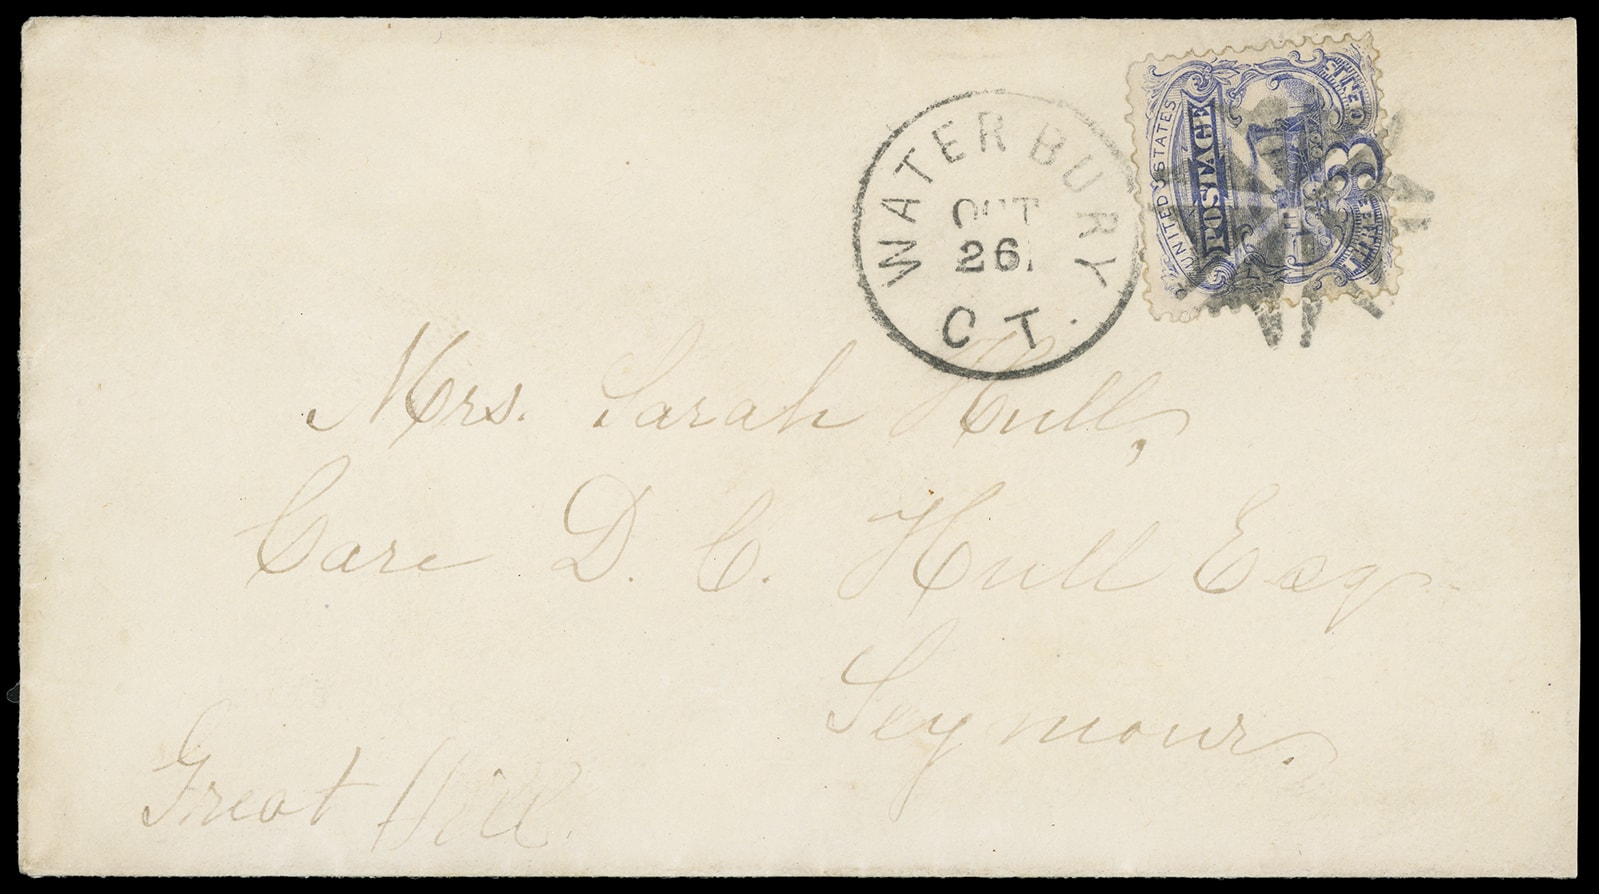 WATERBURY
OCT
26
CT.
UNITED STATES
POSTAGE
THREE 3 CENTS
Mrs. Sarah Hull,
Care D. C. Hull Esq
Seymour.
Great Hill